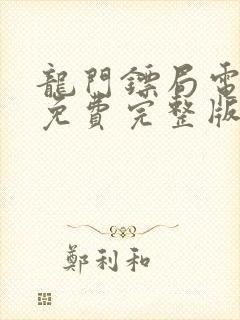 龍門鏢局電
免費完整版
鄭利和